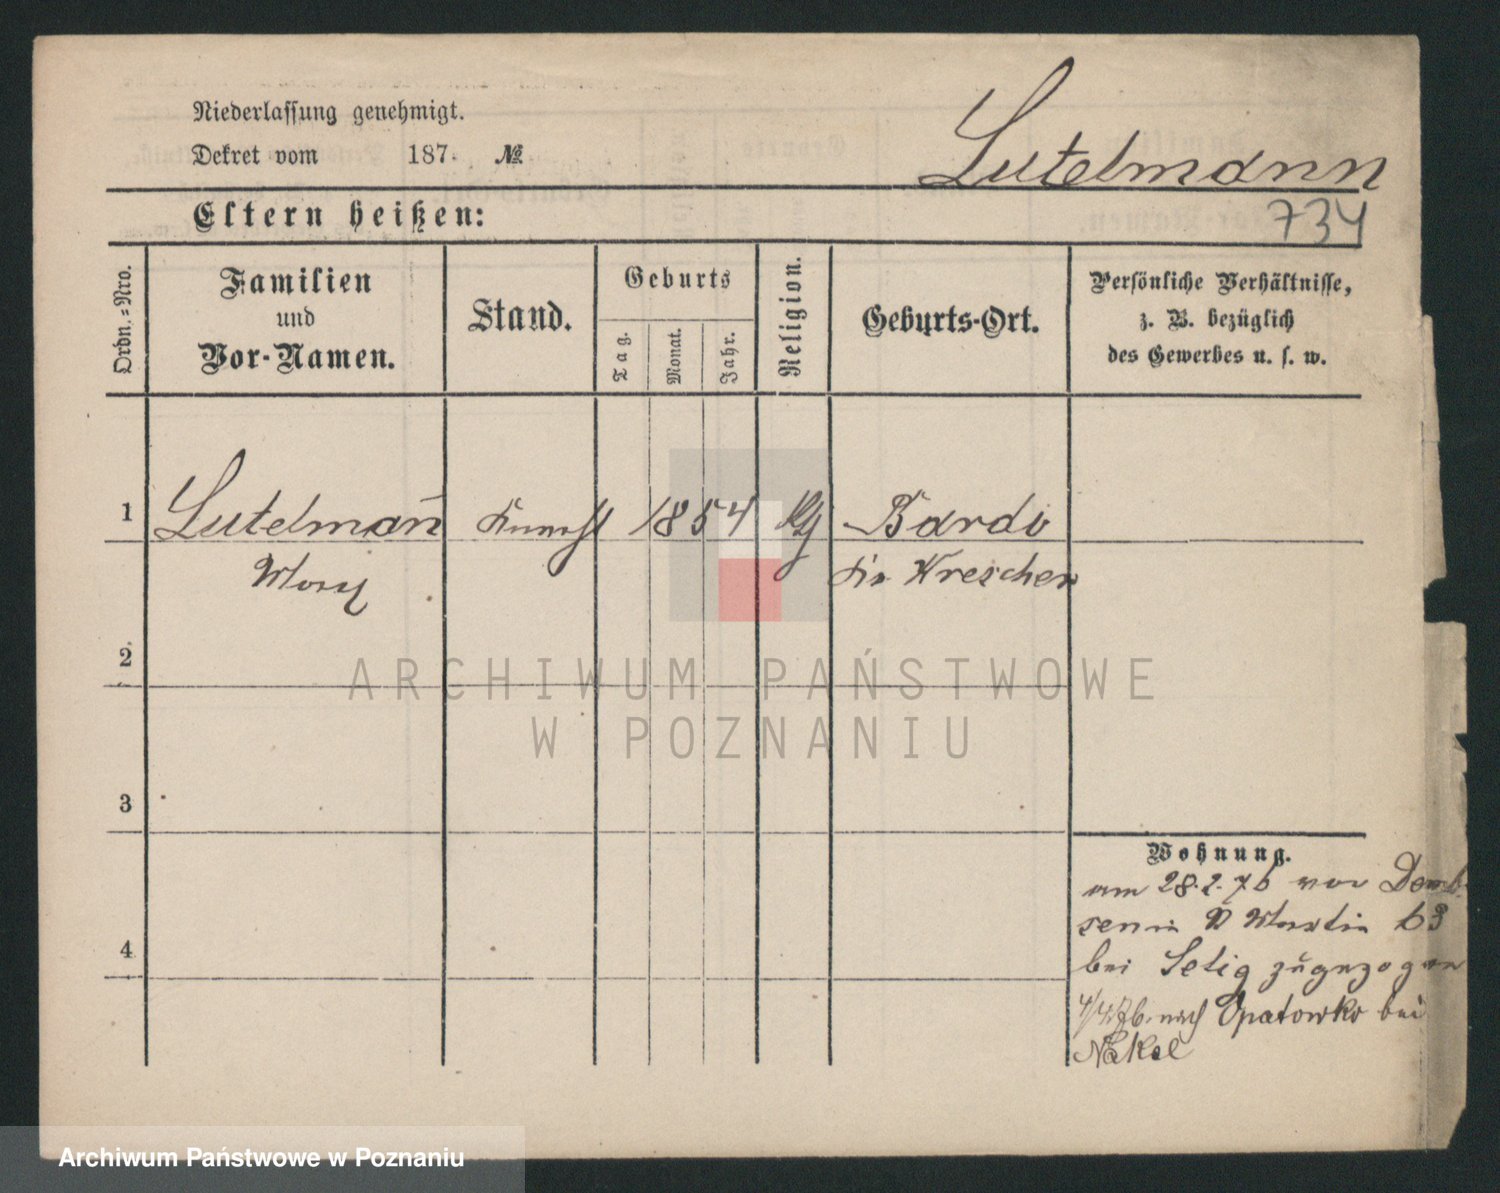 Niederlassung genehmigt.
Dekret vom 187. №
Lutelmann
Eltern heißen:
734
Ordn.=Nro.
Familien
und
Vor-Namen.
Stand.
Geburts
Tag.
Monat.
Jahr.
Religion.
Geburts-Ort.
Persönliche Verhältnisse,
z. B. bezüglich
des Gewerbes u. s. w.
1 Lutelman̄ 1854 Bardo
Wreschen
2
3
4
Wohnung.
am 28.2.76 von Demb
sen in Martin 63
bei Selig zugezogen
4/4.76. nach Opatowko bei
Nakel
ARCHIWUM PAŃSTWOWE
W POZNANIU
Archiwum Państwowe w Poznaniu